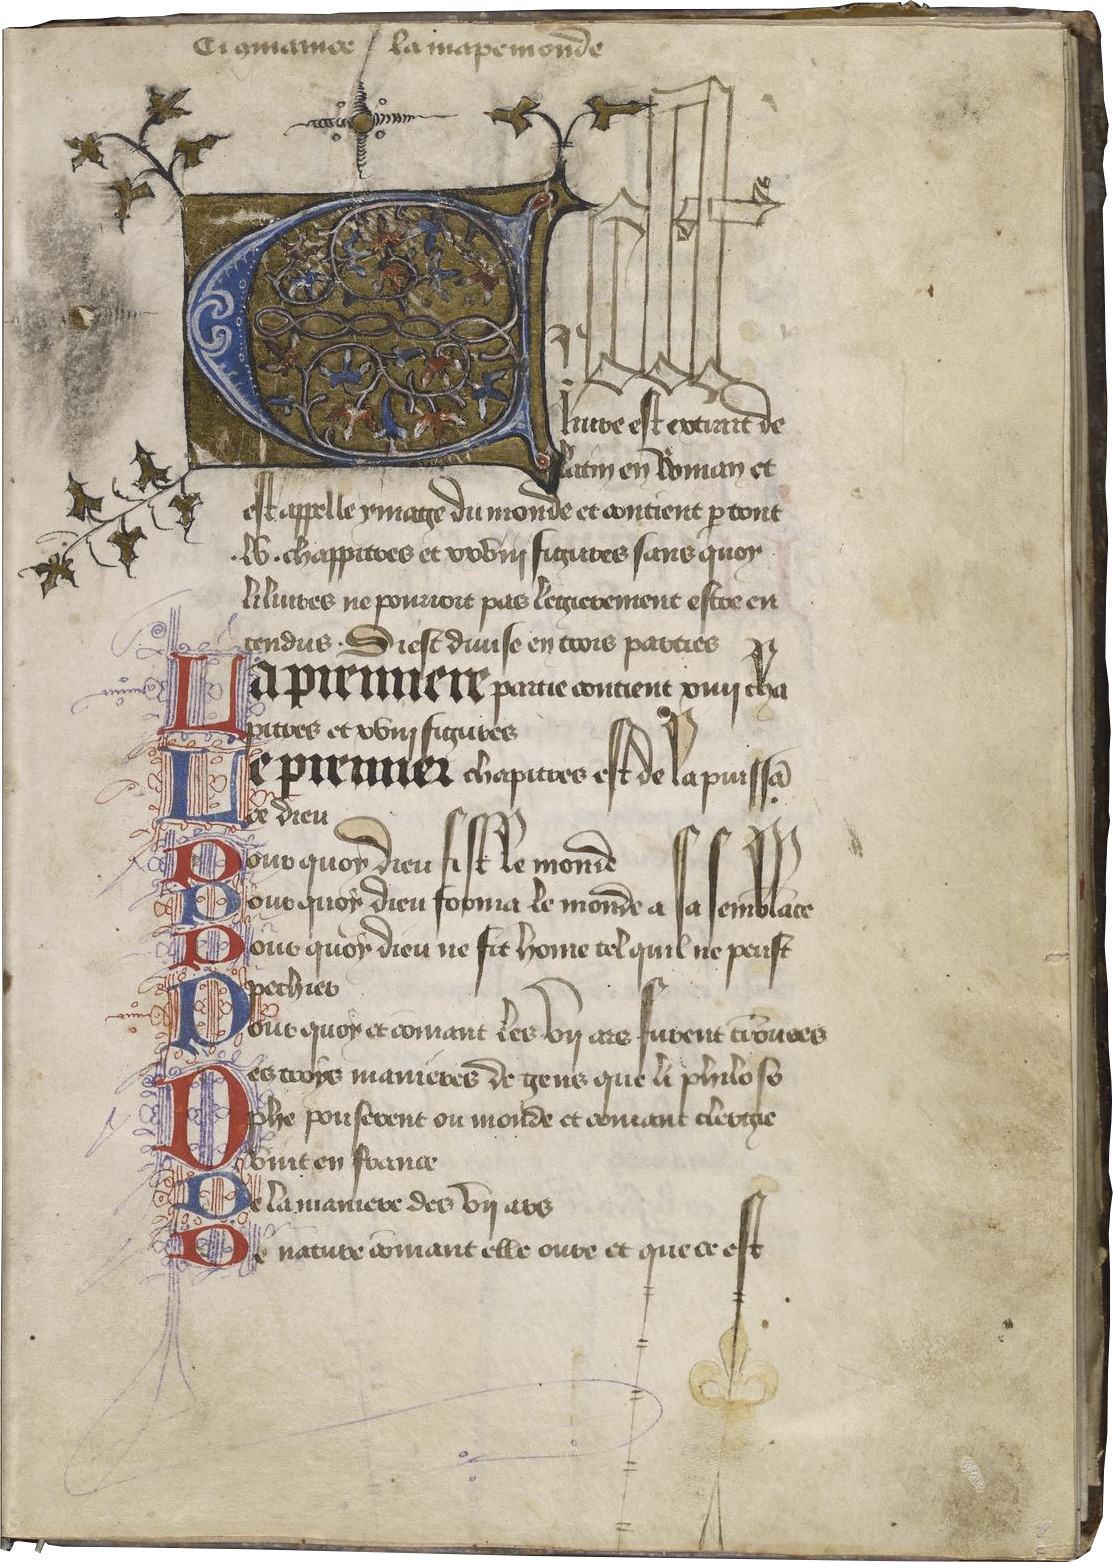 Ci gmamce la mapemonde
Cilz
liure est extrait de
latin en Roman et
est appelle ymage du monde et contient p tout
.lv. chappitres et xxviii figures sans quoy
li liures ne pourroit pas legierement estre en
tendus. Si est diuise en trois parties
La piremiere partie contient xiiii cha
pitres et viii figures
Le piremier chapitres est de la puissā
ce dieu
Pour quoy dieu fist le monde
Pour quoy dieu forma le monde a sa semblāce
Pour quoy dieu ne fit home tel quil ne peust
pechier
Pour quoy et comant les vii ars furent trouees
Des troys manieres de gens que li philoso
phe poserent ou monde et comant clergie
vint en france
De la maniere des vii ars
De nature comant elle oure et que ce est